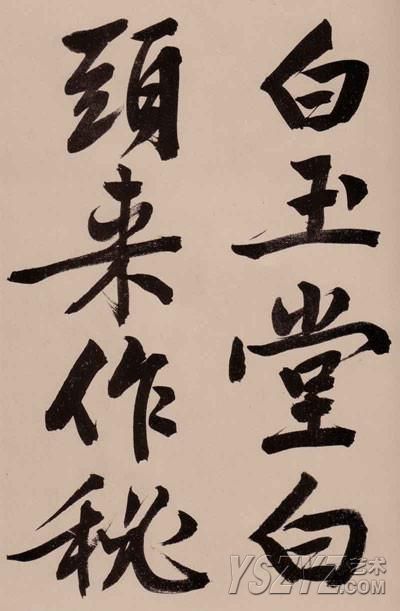 白玉堂白
頭来作秘
YSZYZ艺术
.COM